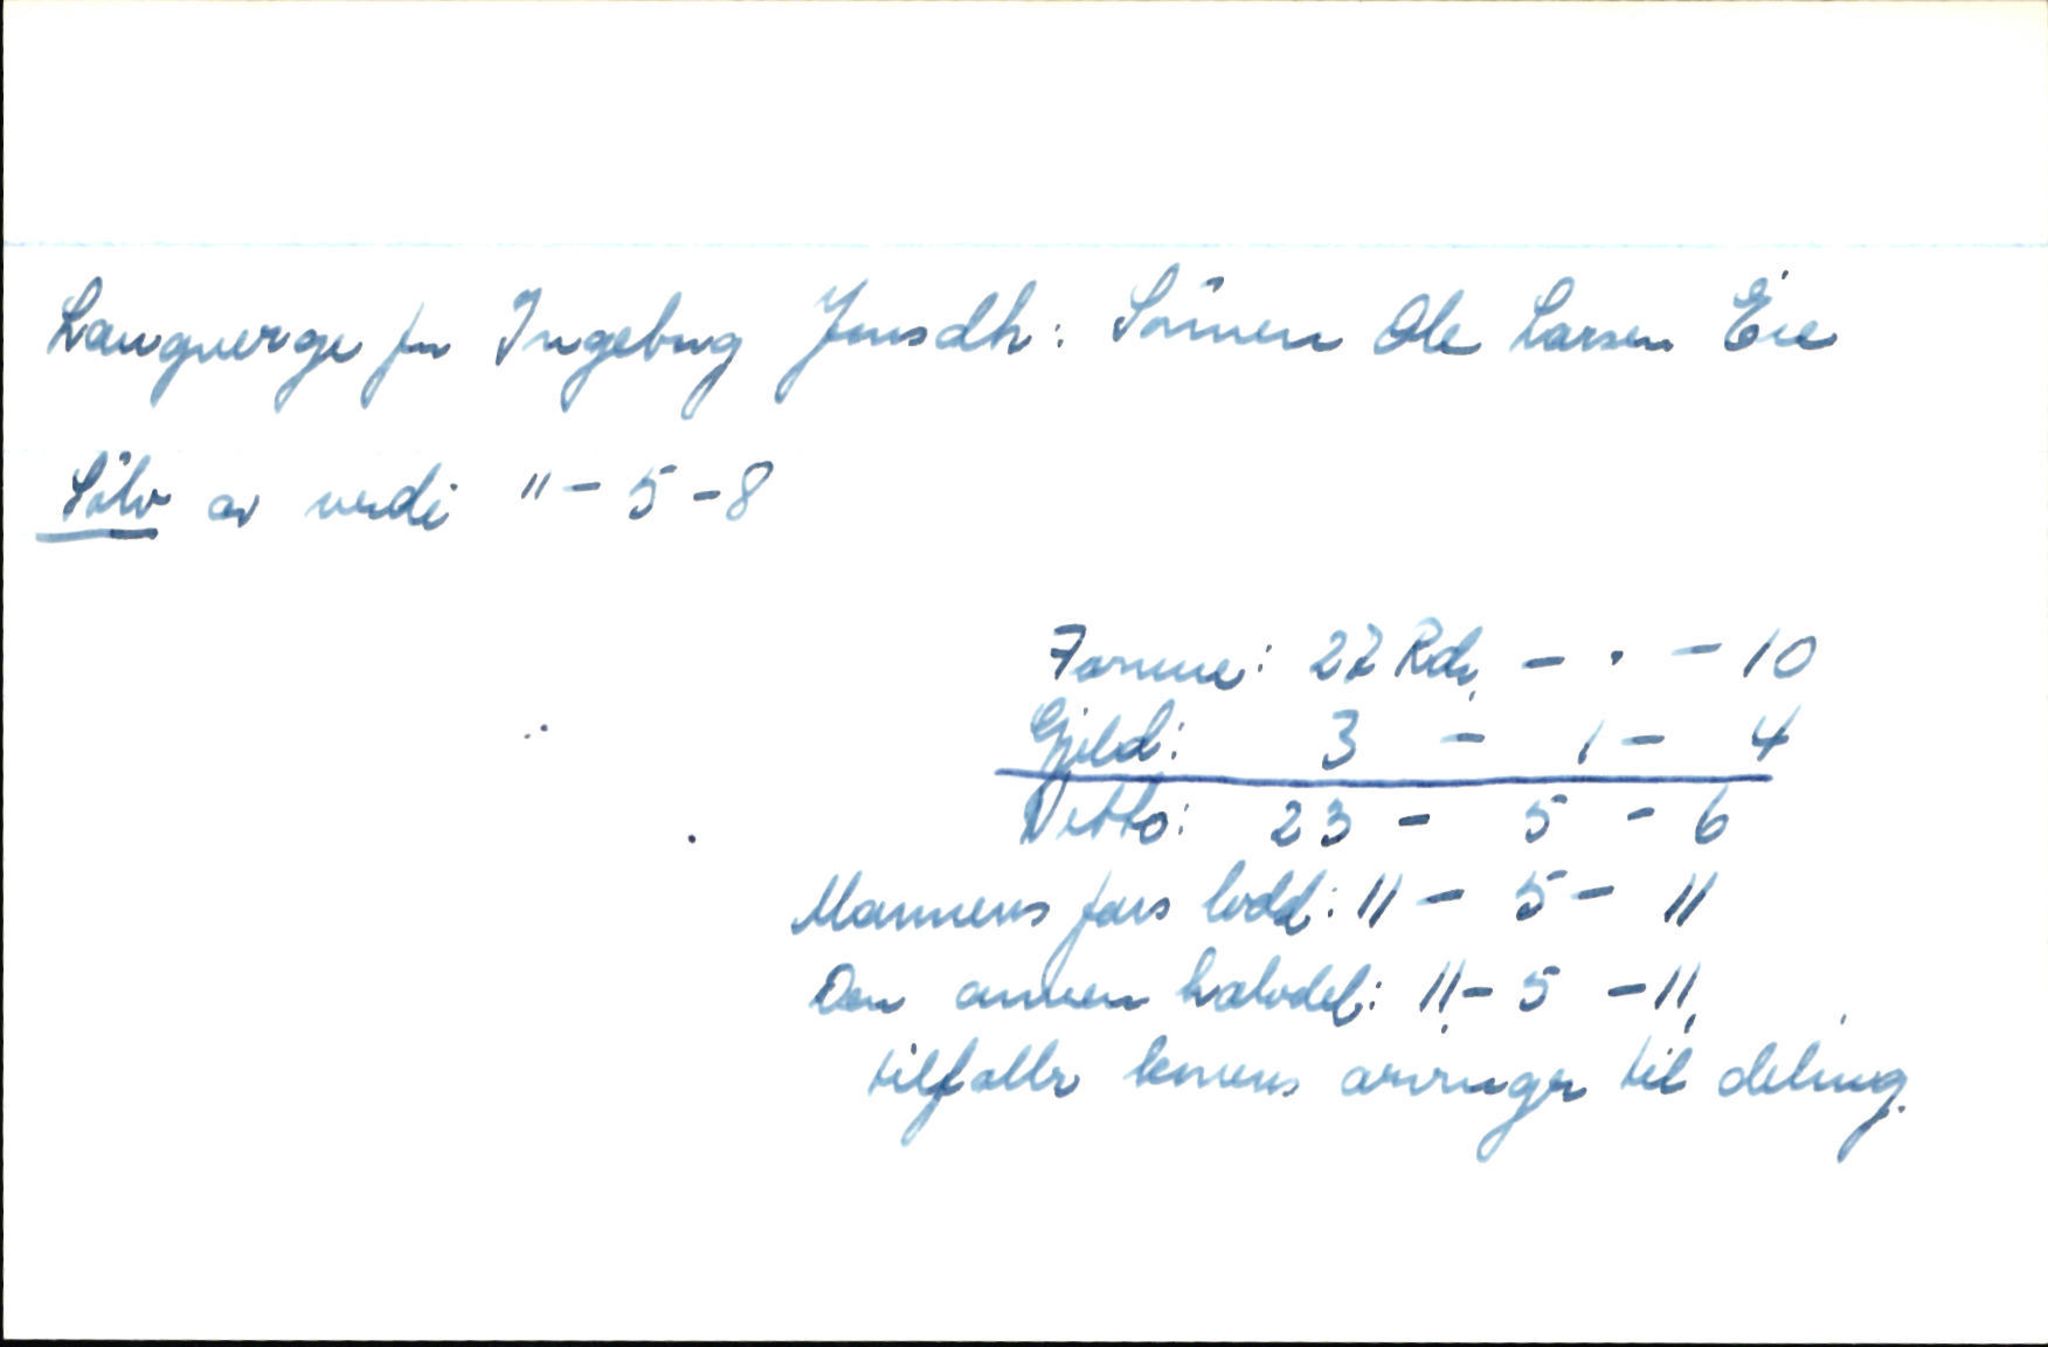 Laugverge for Ingebrg Jensdh: Sönnen Ole Larsen Eie
Sölv av verdi " - 5 - 8
Formue: 27 Rd, - . - 10
Gjeld: 3 - 1 - 4
Netto: 23 - 5 - 6
Mannens fars lodd: 11 - 5 - 11
Den annen halvdel: 11 - 5 - 11,
tilfaller konens arvinger til deling.